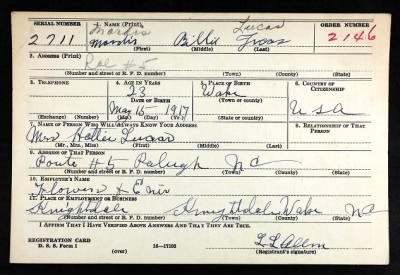 SERIAL NUMBER 1. NAME (Print) Lucas ORDER NUMBER
2711 Morris Billie 2146
(First) (Middle) (Last)
2. ADDRESS (Print)
Ral #5
(Number and street or R. F. D. number) (Town) (County) (State)
3. TELEPHONE 4. AGE IN YEARS 5. PLACE OF BIRTH 6. COUNTRY OF CITIZENSHIP
23 Wake
DATE OF BIRTH (Town or county)
May 15 1917 U S A
(Exchange) (Number) (Mo.) (Day) (Yr.) (State or country)
7. NAME OF PERSON WHO WILL ALWAYS KNOW YOUR ADDRESS 8. RELATIONSHIP OF THAT PERSON
Mrs Hattie Lucas
(Mr., Mrs., Miss) (First) (Middle) (Last)
9. ADDRESS OF THAT PERSON
Route #5 Raleigh N C
(Number and street or R. F. D. number) (Town) (County) (State)
10. EMPLOYER'S NAME
Flowers &
11. PLACE OF EMPLOYMENT OR BUSINESS
Knightdale Knightdale Wake N C
(Number and street or R. F. D. number) (Town) (County) (State)
I AFFIRM THAT I HAVE VERIFIED ABOVE ANSWERS AND THAT THEY ARE TRUE.
REGISTRATION CARD
D. S. S. Form 1 (over) 16—17105 (Registrant's signature)